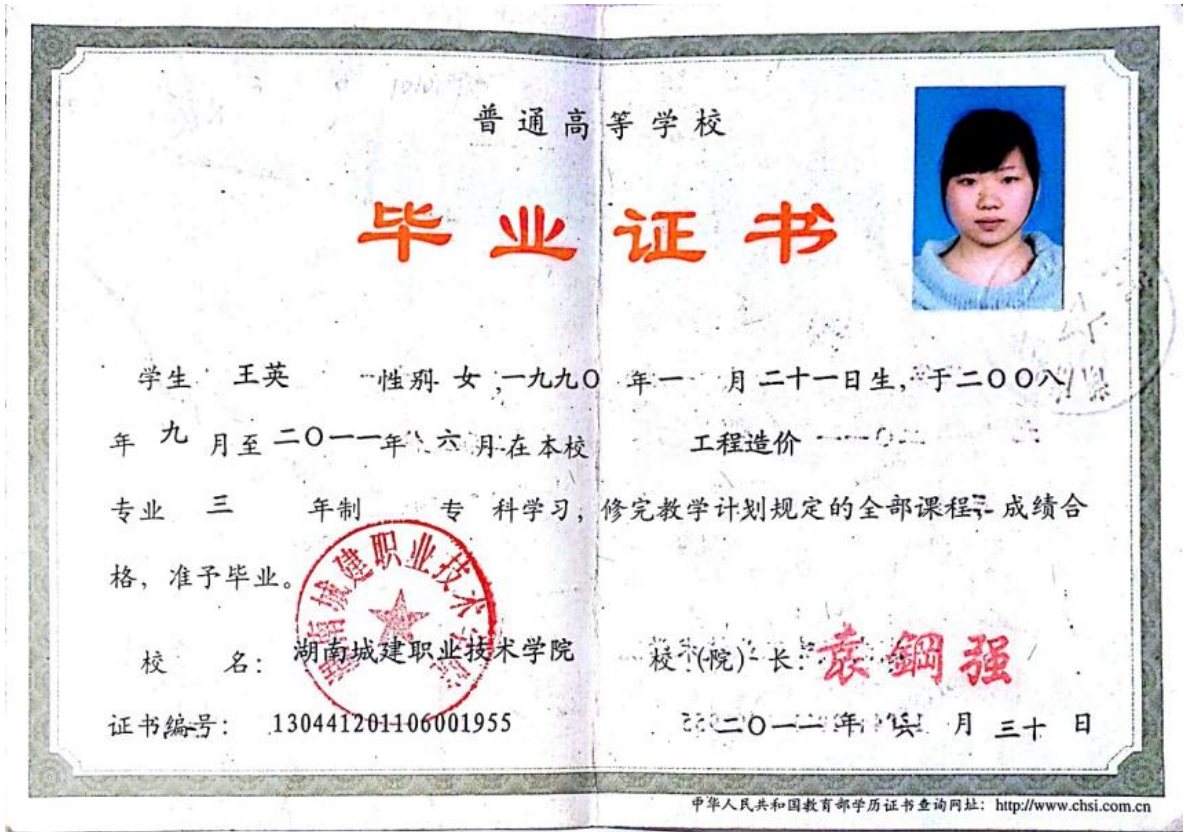 普通高等学校
毕业证书
学生 王英 性别 女，一九九〇 年 一 月 二十一日生，于二〇〇八
年 九 月至 二〇一一年 六 月在本校 工程造价
专业 三 年制 专 科学习，修完教学计划规定的全部课程，成绩合
格，准予毕业。
湖南城建职业技术学院
校 名： 湖南城建职业技术学院 校（院）长：袁鋼强
证书编号： 130441201106001955 二〇一一 年 六 月 三十 日
中华人民共和国教育部学历证书查询网址：http://www.chsi.com.cn